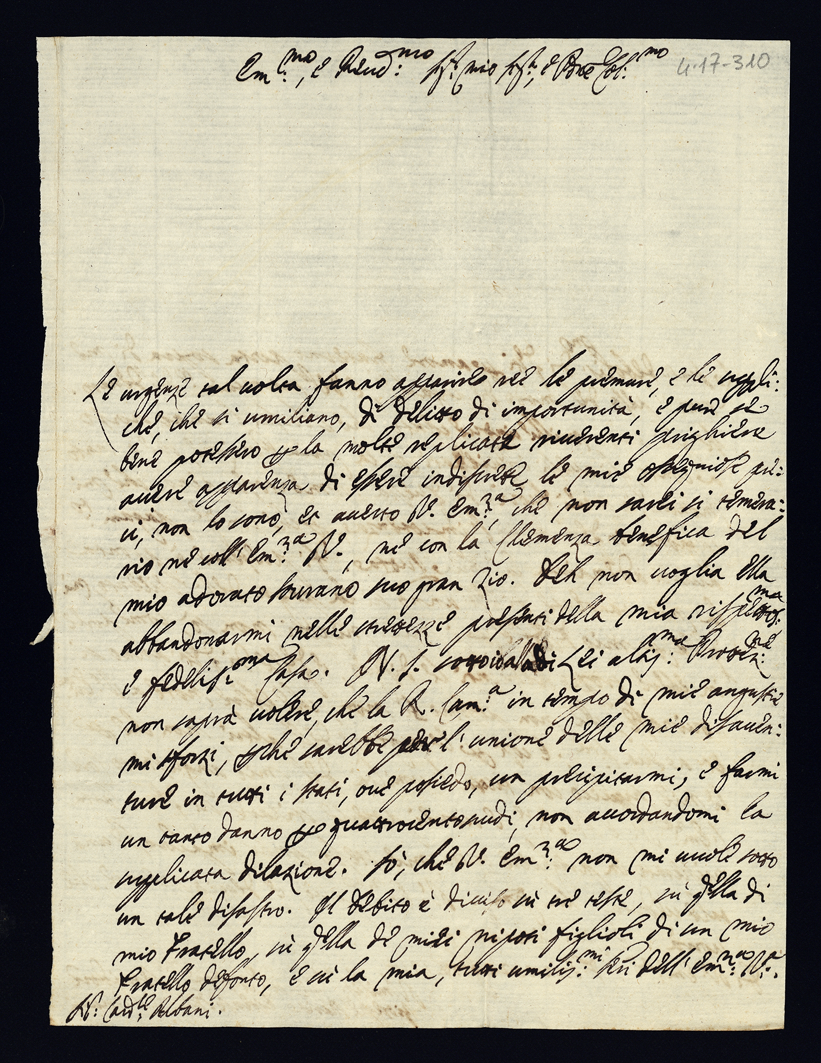 Em.mo, e Reud.mo Sig.r mio Sig.r, e Pne Col.mo
4-17-310
Le urgenze tal uolta fanno apparire ree le premure, e le suppli:
che, che si umiliano, di delitto di importunità, e pure se
bene potessero p la molte replicate riuerenti preghiere
auere apparenza di essere indiscrete le mie ossequiose pre:
ci, non lo sono, et auerto V. Em.za, che non sarei sì temera:
rio ne coll' Em.za V., ne con la Clemenza benefica del
mio adorato sourano suo gran Zio. Deh non uoglia ella
abbandonarmi nelle strettezze presenti della mia rispettos.ma
e fedeliss.ma Casa. N. S. di Lei alaj.ma
non saprà uolere, che la R. Cam.a in tempo di mie angustie
mi sforzi, pche sarebbe per l'unione delle mie disauen:
ture in tutti i stati, oue possiedo, un precipitarmi, e farmi
un tanto danno p quattrocento scudi, non accordandomi la
supplicata dilazione. Sò, che V. Em.za non mi uuole sotto
un tale disastro. Il debito è diuiso in tre teste, in qlla di
mio Fratello, in qlla de miei nipoti figlioli di un mio
Fratello defonto, e in la mia, tutti umiliss.mi Ser.ri dell' Em.za V.a.
S.r Card.le Albani.